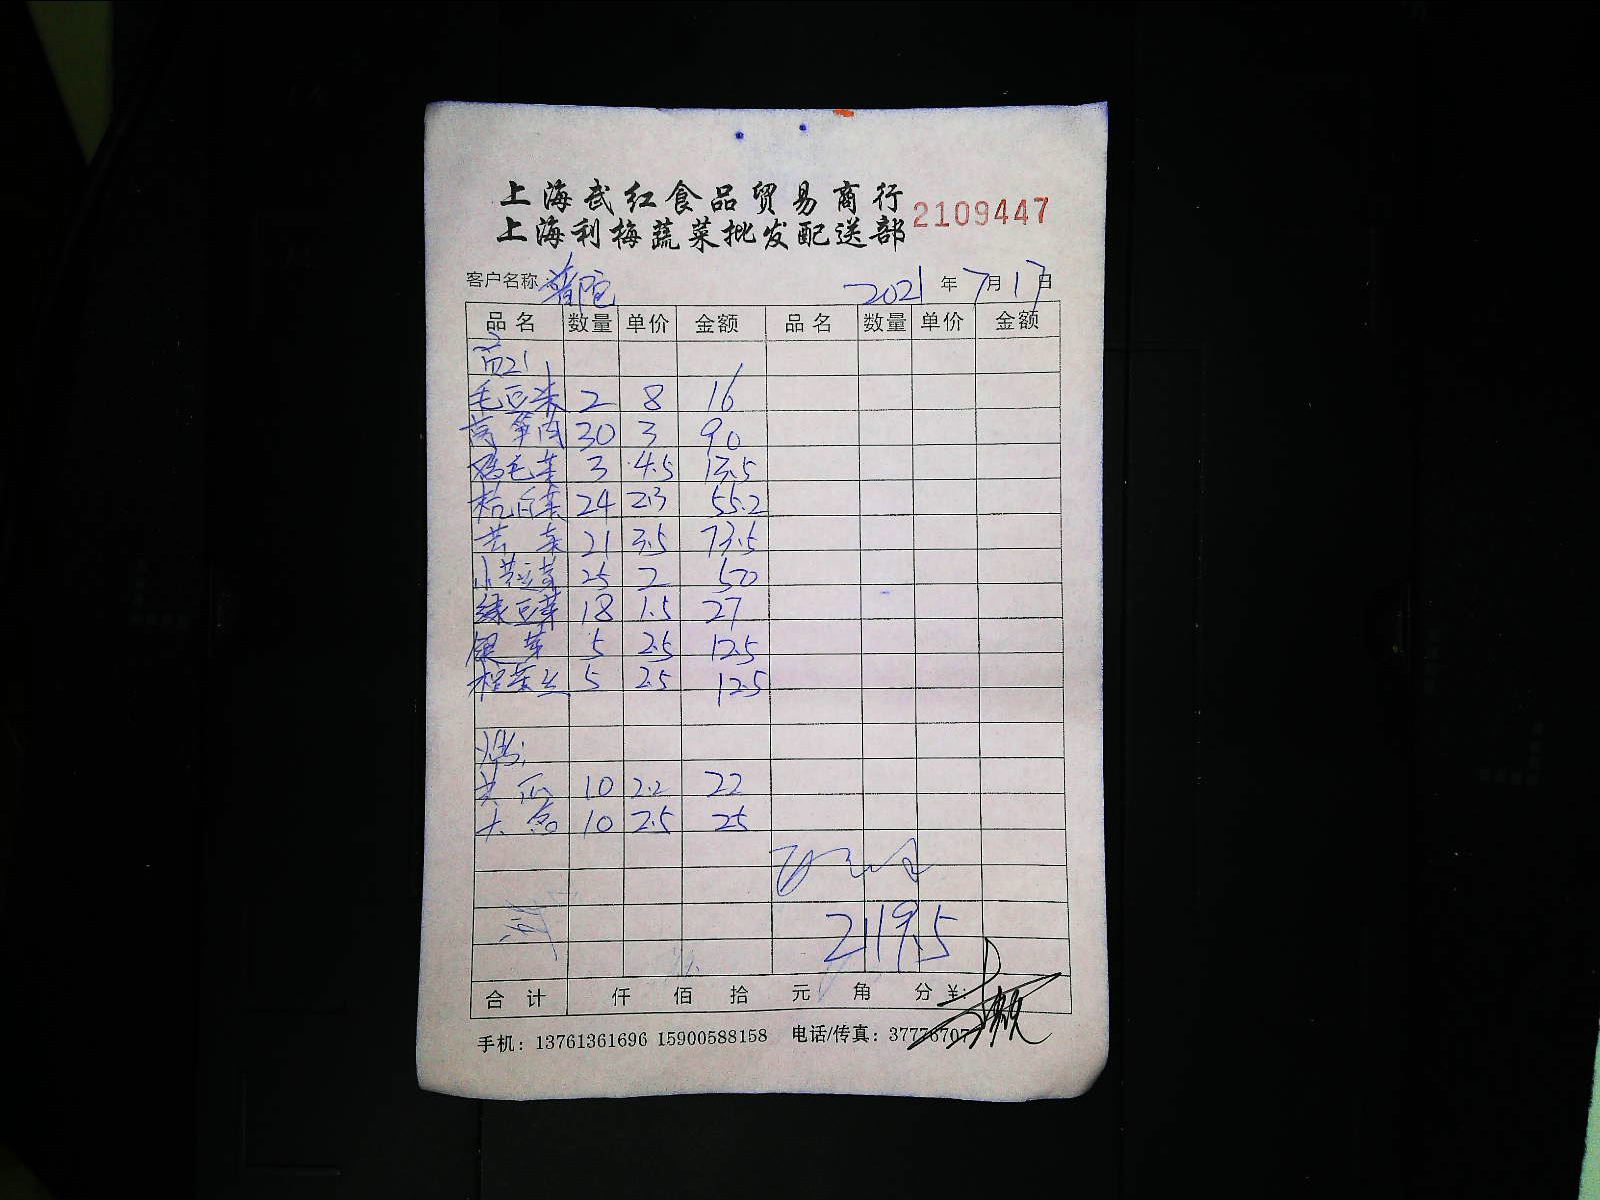 上海武红食品贸易商行
上海利梅蔬菜批发配送部 2109447
客户名称：普陀 2021年7月17日
品名 数量 单价 金额 品名 数量 单价 金额
毛豆米 2 8 16
莴笋肉 30 3 90
鸡毛菜 3 4.5 13.5
杭白菜 24 2.3 55.2
苦菜 21 3.5 73.5
25 2 50
绿豆芽 18 1.5 27
银芽 5 2.5 12.5
榨菜丝 5 2.5 12.5
10 2.2 22
大葱 10 2.5 25
2119.5
合计 仟 佰 拾 元 角 分 ¥:
手机：13761361696 15900588158 电话/传真：37776707